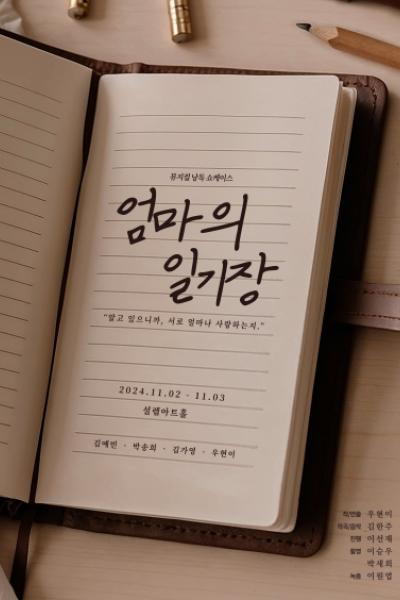 뮤지컬 낭독 쇼케이스
엄마의
일기장
"알고 있으니까, 서로 얼마나 사랑하는지."
2024.11.02 - 11.03
설렘아트홀
김예빈 · 박송희 · 김가영 · 우현이
작/연출 우현이
작곡/음악 김한주
진행 이선재
촬영 이승우
박세희
녹음 이원엽